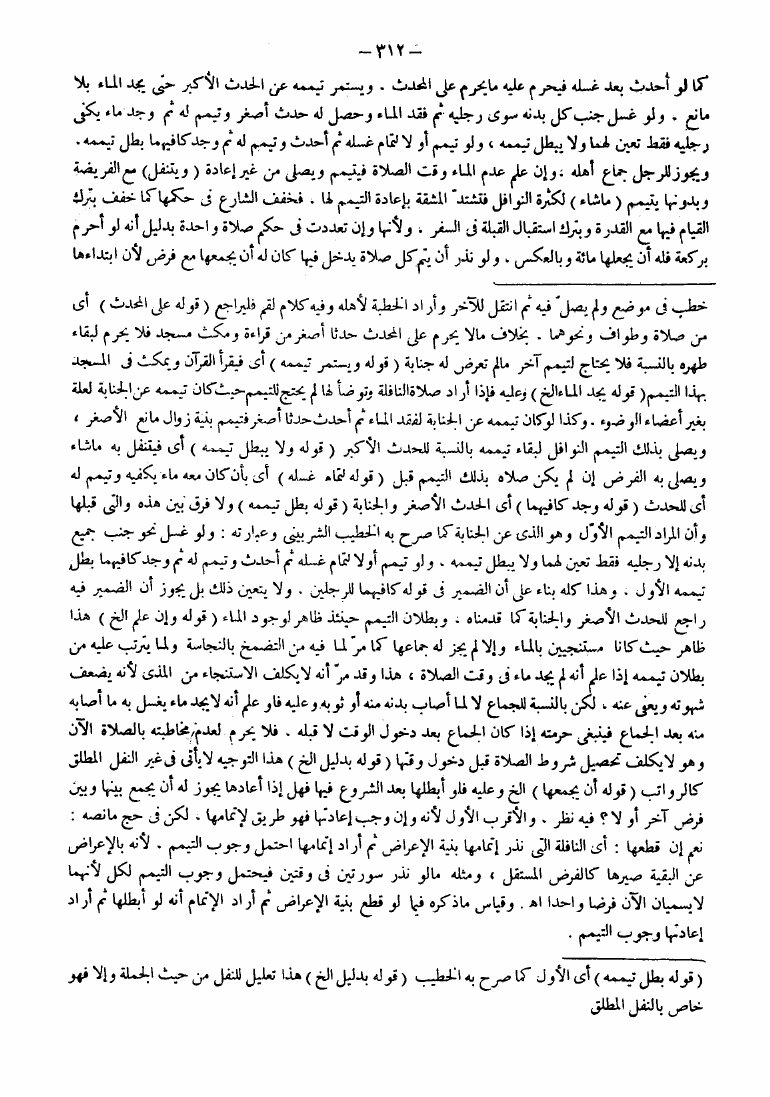 — ٣١٢ —
كما لو أحدث بعد غسله فيحرم عليه مايحرم على المحدث . ويستمر تيممه عن الحدث الأكبر حتى يجد الماء بلا
مانع . ولو غسل جنب كل بدنه سوى رجليه ثم فقد الماء وحصل له حدث أصغر وتيمم له ثم وجد ماء يكفى
رجليه فقط تعين لهما ولا يبطل تيممه ، ولو تيمم أو لا لتمام غسله ثم أحدث وتيمم له ثم وجد كافيهما بطل تيممه .
ويجوز للرجل جماع أهله . وإن علم عدم الماء وقت الصلاة فيتيمم ويصلى من غير إعادة ( ويتنفل ) مع الفريضة
وبدونها بتيمم ( ماشاء ) لكثرة النوافل فتشتدّ المشقة بإعادة التيمم لها . فخفف الشارع فى حكمها كما خفف بترك
القيام فيها مع القدرة وبترك استقبال القبلة فى السفر . ولأنها وإن تعددت فى حكم صلاة واحدة بدليل أنه لو أحرم
بركعة فله أن يجعلها مائة وبالعكس . ولو نذر أن يتم كل صلاة يدخل فيها كان له أن يجمعها مع فرض لأن ابتداءها
خطب فى موضع ولم يصلّ فيه ثم انتقل للآخر وأراد الخطبة لأهله وفيه كلام لقم فليراجع ( قوله على المحدث ) أى
من صلاة وطواف ونحوهما . بخلاف مالا يحرم على المحدث حدثا أصغر من قراءة ومكث مسجد فلا يحرم لبقاء
طهره بالنسبة فلا يحتاج لتيمم آخر مالم تعرض له جنابة ( قوله ويستمر تيممه ) أى فيقرأ القرآن ويمكث فى المسجد
بهذا التيمم ( قوله يجد الماء الخ ) وعليه فإذا أراد صلاة النافلة وتوضأ لها لم يحتج للتيمم حيث كان تيممه عن الجنابة لعلة
بغير أعضاء الوضوء . وكذا لو كان تيممه عن الجنابة لفقد الماء ثم أحدث حدثا أصغر فتيمم بنية زوال مانع الأصغر ،
ويصلى بذلك التيمم النوافل لبقاء تيممه بالنسبة للحدث الأكبر ( قوله ولا يبطل تيممه ) أى فيتنفل به ماشاء
ويصلى به الفرض إن لم يكن صلاه بذلك التيمم قبل ( قوله لتمام غسله ) أى بأن كان معه ماء يكفيه وتيمم له
أى للحدث ( قوله وجد كافيهما ) أى الحدث الأصغر والجنابة ( قوله بطل تيممه ) ولا فرق بين هذه والتى قبلها
وأن المراد التيمم الأوّل وهو الذى عن الجنابة كما صرح به الخطيب الشربينى وعبارته : ولو غسل نحو جنب جميع
بدنه إلا رجليه فقط تعين لهما ولا يبطل تيممه . ولو تيمم أولا لتمام غسله ثم أحدث وتيمم له ثم وجد كافيهما بطل
تيممه الأول . وهذا كله بناء على أن الضمير فى قوله كافيهما للرجلين . ولا يتعين ذلك بل يجوز أن الضمير فيه
راجع للحدث الأصغر والجنابة كما قدمناه . وبطلان التيمم حينئذ ظاهر لوجود الماء ( قوله وإن علم الخ ) هذا
ظاهر حيث كانا مستنجيين بالماء وإلا لم يجز له جماعها كما مرّ لما فيه من التضمخ بالنجاسة ولما يترتب عليه من
بطلان تيممه إذا علم أنه لم يجد ماء فى وقت الصلاة ، هذا وقد مرّ أنه لايكلف الاستنجاء من المذى لأنه يضعف
شهوته ويعنى عنه . لكن بالنسبة للجماع لا لما أصاب بدنه منه أو ثوبه وعليه فلو علم أنه لايجد ماء يغسل به ما أصابه
منه بعد الجماع فينبغى حرمته إذا كان الجماع بعد دخول الوقت لا قبله . فلا يحرم لعدم مخاطبته بالصلاة الآن
وهو لايكلف تحصيل شروط الصلاة قبل دخول وقتها ( قوله بدليل الخ ) هذا التوجيه لايأتى فى غير النفل المطلق
كالرواتب ( قوله أن يجمعها ) الخ وعليه فلو أبطلها بعد الشروع فيها فهل إذا أعادها يجوز له أن يجمع بينها وبين
فرض آخر أو لا ؟ فيه نظر . والأقرب الأول لأنه وإن وجب إعادتها فهو طريق لإتمامها . لكن فى حج مانصه :
نعم إن قطعها : أى النافلة التى نذر إتمامها بنية الإعراض ثم أراد إتمامها احتمل وجوب التيمم . لأنه بالإعراض
عن البقية صيرها كالفرض المستقل ، ومثله مالو نذر سورتين فى وقتين فيحتمل وجوب التيمم لكل لأنهما
لايسميان الآن فرضا واحدا اه . وقياس ماذكره فيما لو قطع بنية الإعراض ثم أراد الإتمام أنه لو أبطلها ثم أراد
إعادتها وجوب التيمم .
( قوله بطل تيممه ) أى الأول كما صرح به الخطيب ( قوله بدليل الخ ) هذا تعليل للنفل من حيث الجملة وإلا فهو
خاص بالنفل المطلق